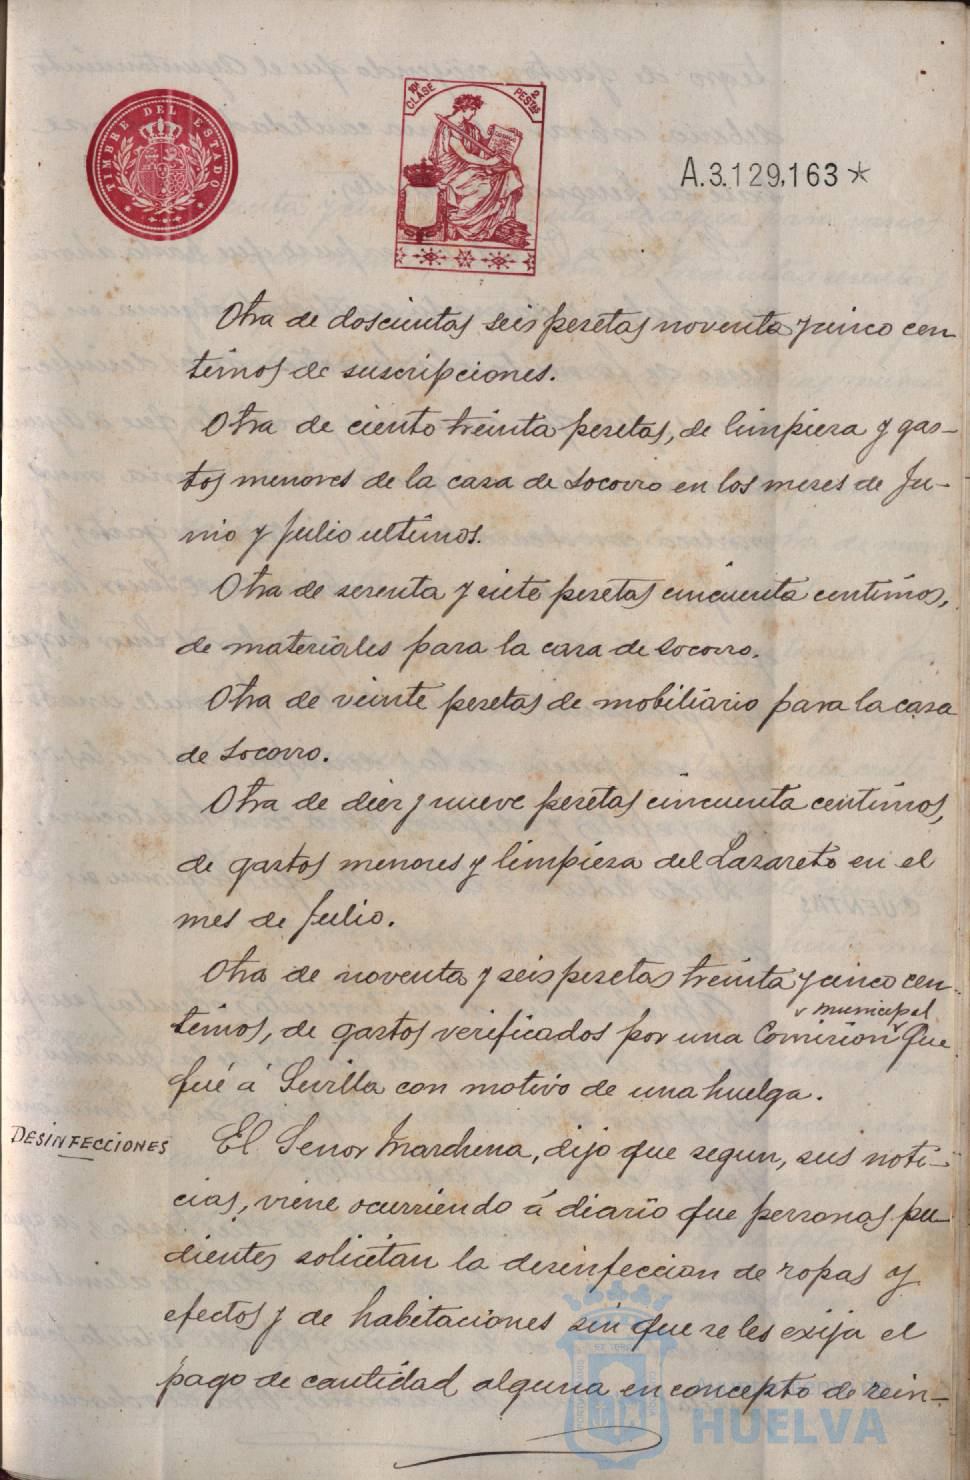 TIMBRE DEL ESTADO
10ª CLASE
2 PESTAS
A.3.129,163*
Otra de doscientas seis pesetas noventa y cinco cen
timos de suscripciones.
Otra de ciento treinta pesetas, de limpiera y gas-
tos menores de la casa de Socorro en los meses de Ju-
nio y Julio ultimos.
Otra de sesenta y siete pesetas cincuenta centimos,
de materiales para la casa de Socorro.
Otra de veinte pesetas de mobiliario para la casa
de Socorro.
Otra de diez y nueve pesetas cincuenta centimos,
de gastos menores y limpieza del Lazareto en el
mes de Julio.
Otra de noventa y seis pesetas treinta y cinco cen-
municipal
timos, de gastos verificados por una Comision que
fué á Sevilla con motivo de una huelga.
DESINFECCIONES
El Señor Marchena, dijo que segun, sus noti-
cias, viene ocurriendo á diario que personas pu-
dientes solicitan la desinfeccion de ropas y
efectos y de habitaciones sin que se les exija el
pago de cantidad alguna en concepto de rein-
HUELVA